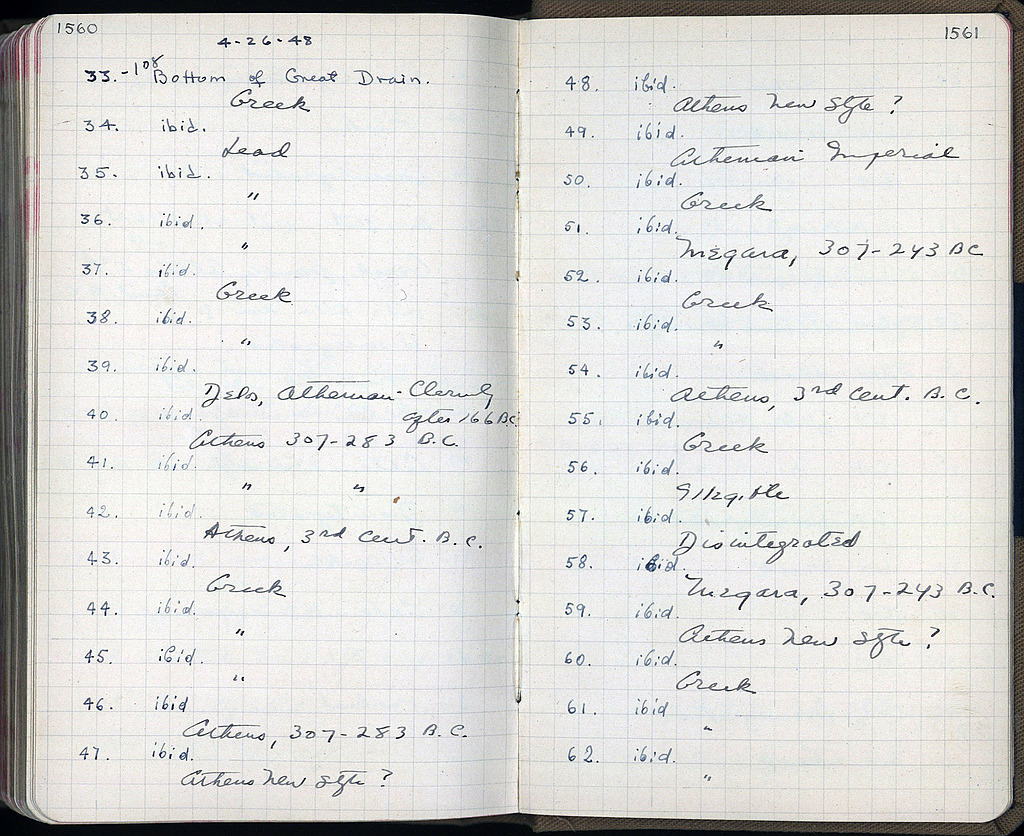 1560
4-26-48
33.-108 Bottom of Great Drain.
Greek
34. ibid.
Lead
35. ibid.
"
36. ibid.
"
37. ibid.
Greek
38. ibid.
"
39. ibid.
Delos, Athenian Cleruchy
40. ibid. after 166 B.C.
Athens 307-283 B.C.
41. ibid.
" "
42. ibid.
Athens, 3rd cent. B.C.
43. ibid.
Greek
44. ibid.
"
45. ibid.
"
46. ibid
Athens, 307-283 B.C.
47. ibid.
Athens New Style?
1561
48. ibid.
Athens New Style?
49. ibid.
Athenian Imperial
50. ibid.
Greek
51. ibid.
Megara, 307-243 BC
52. ibid.
Greek
53. ibid.
"
54. ibid.
Athens, 3rd Cent. B.C.
55. ibid.
Greek
56. ibid.
Illegible
57. ibid.
Disintegrated
58. ibid.
Megara, 307-243 B.C.
59. ibid.
Athens New Style?
60. ibid.
Greek
61. ibid
"
62. ibid.
"